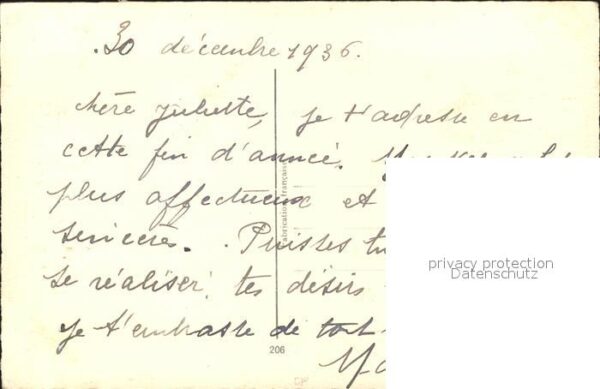 30 décembre 1936.
chère Juliette, je t'adresse en
cette fin d'année.
plus affectueux et
sincères. Puisses tu
se réaliser tes désirs
je t'embrasse de tout
privacy protection
Datenschutz
Fabrication française
206